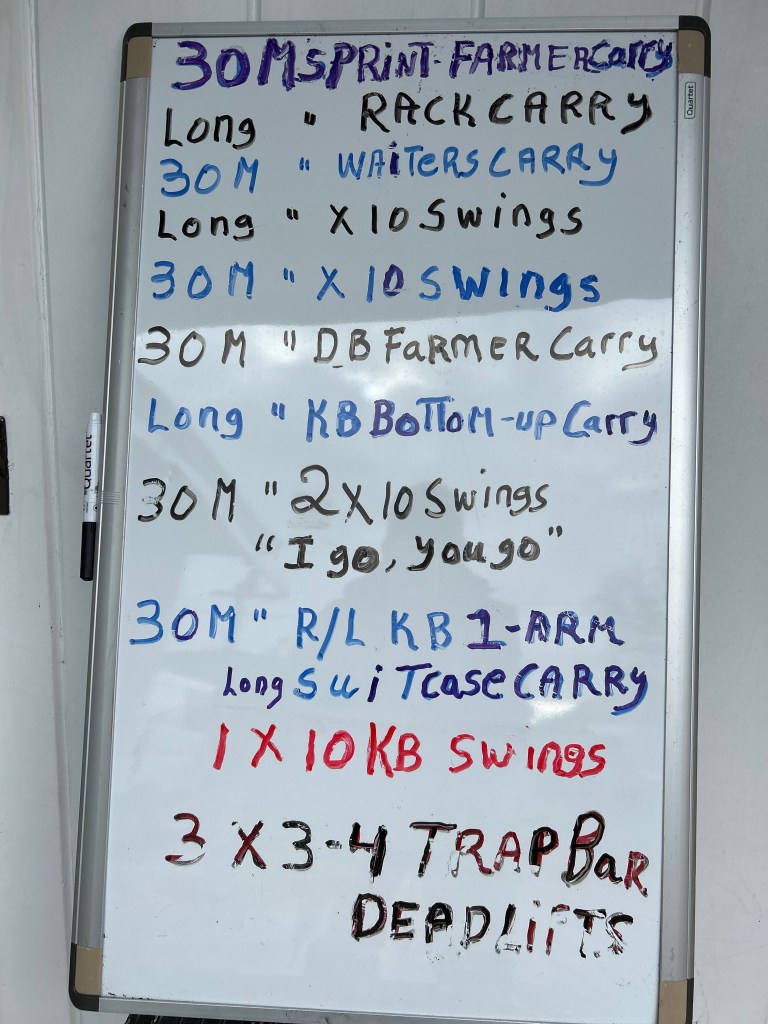 30M SPRINT-FARMER Carry
Long " RACK CARRY
30M " WAiTERS CARRY
Long " X 10 Swings
30M " X 10 SWings
30M " DB FaRMER Carry
Long " KB BoTToM-up Carry
30M " 2 X 10 Swings
"I go, you go"
30M " R/L KB 1-ARM
Long SuiTcase CARRY
1 X 10 KB Swings
3 X 3-4 TRAP BaR
DEADLiFTS
Quartet
Quartet